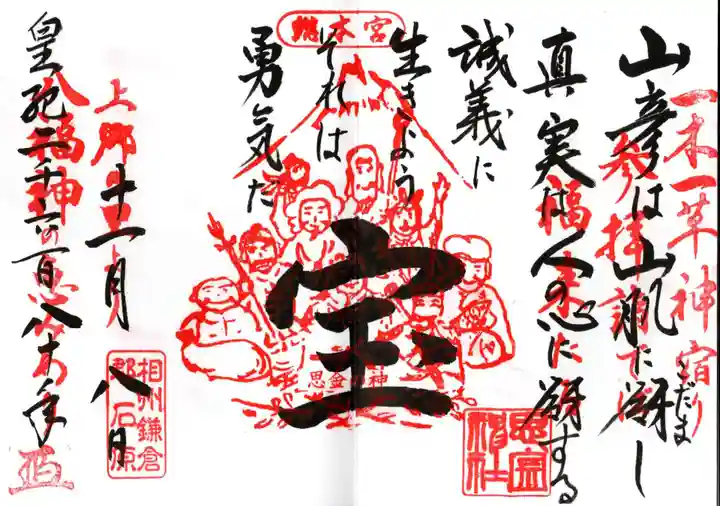 一木一草神宿り
山彦は山肌に谺し
こだま
参拝
真実は人の心に谺する
福来
誠義に
生きよう
それは
勇気だ
総本宮
宝
思金の神
思金神社
上郷
十一月八日
八福神の恵み
皇紀二千六百八十年
相州鎌倉
郡石原